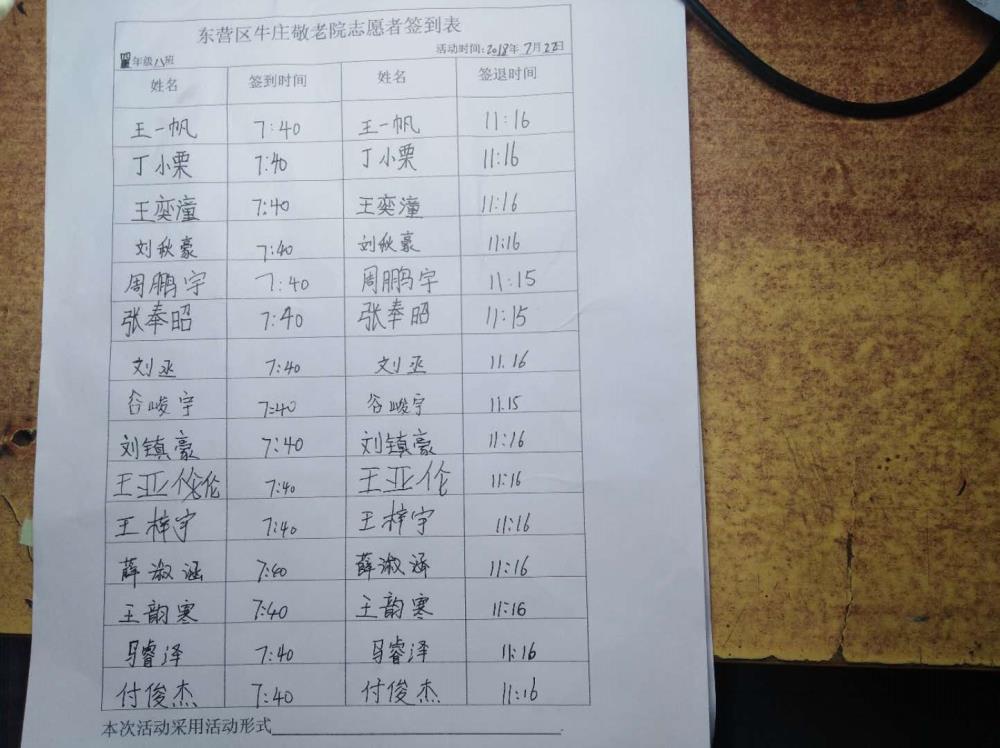 东营区牛庄敬老院志愿者签到表
年级八班 活动时间:2018年7月22日
姓名 签到时间 姓名 签退时间
王一帆 7:40 王一帆 11:16
丁小栗 7:40 丁小栗 11:16
王奕潼 7:40 王奕潼 11:16
刘秋豪 7:40 刘秋豪 11:16
周鹏宇 7:40 周鹏宇 11:15
张奉昭 7:40 张奉昭 11:15
刘丞 7:40 刘丞 11.16
谷峻宇 7:40 谷峻宇 11.15
刘镇豪 7:40 刘镇豪 11:16
王亚伦 7:40 王亚伦 11:16
王梓宇 7:40 王梓宇 11:16
薛淑涵 7:40 薛淑涵 11:16
王韵寒 7:40 王韵寒 11:16
马睿泽 7:40 马睿泽 11:16
付俊杰 7:40 付俊杰 11:16
本次活动采用活动形式